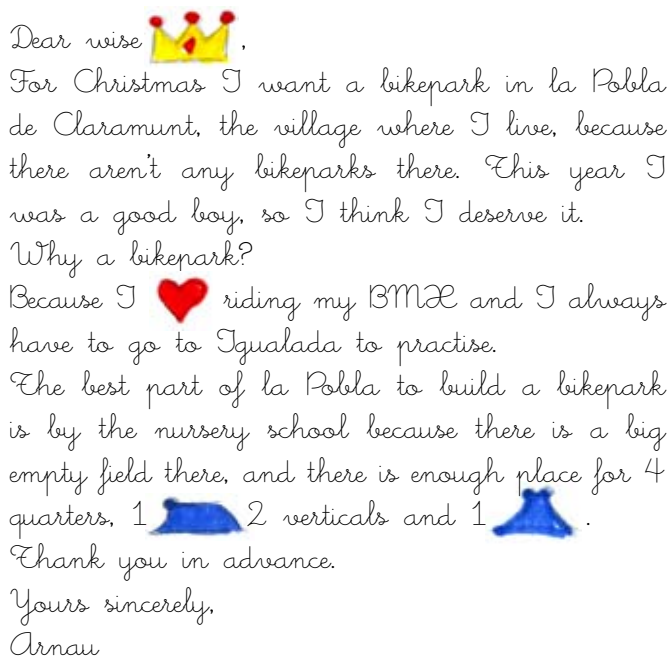 Dear wise ,
For Christmas I want a bikepark in la Pobla
de Claramunt, the village where I live, because
there aren't any bikeparks there. This year I
was a good boy, so I think I deserve it.
Why a bikepark?
Because I riding my BMX and I always
have to go to Igualada to practise.
The best part of la Pobla to build a bikepark
is by the nursery school because there is a big
empty field there, and there is enough place for 4
quarters, 1 2 verticals and 1 .
Thank you in advance.
Yours sincerely,
Arnau